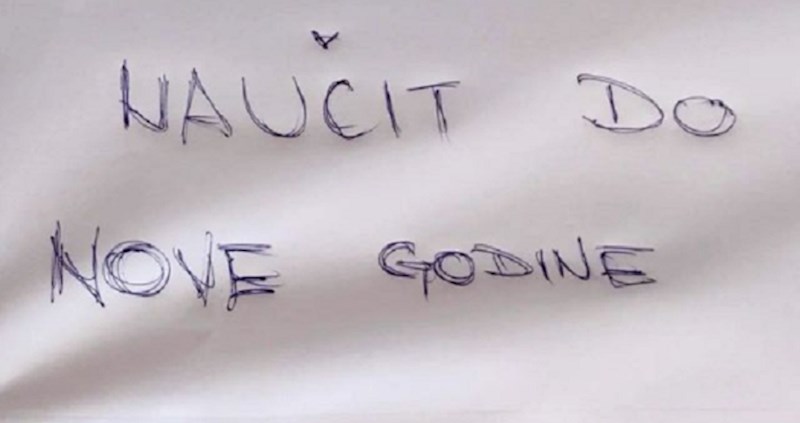 NAUČIT DO
NOVE GODINE